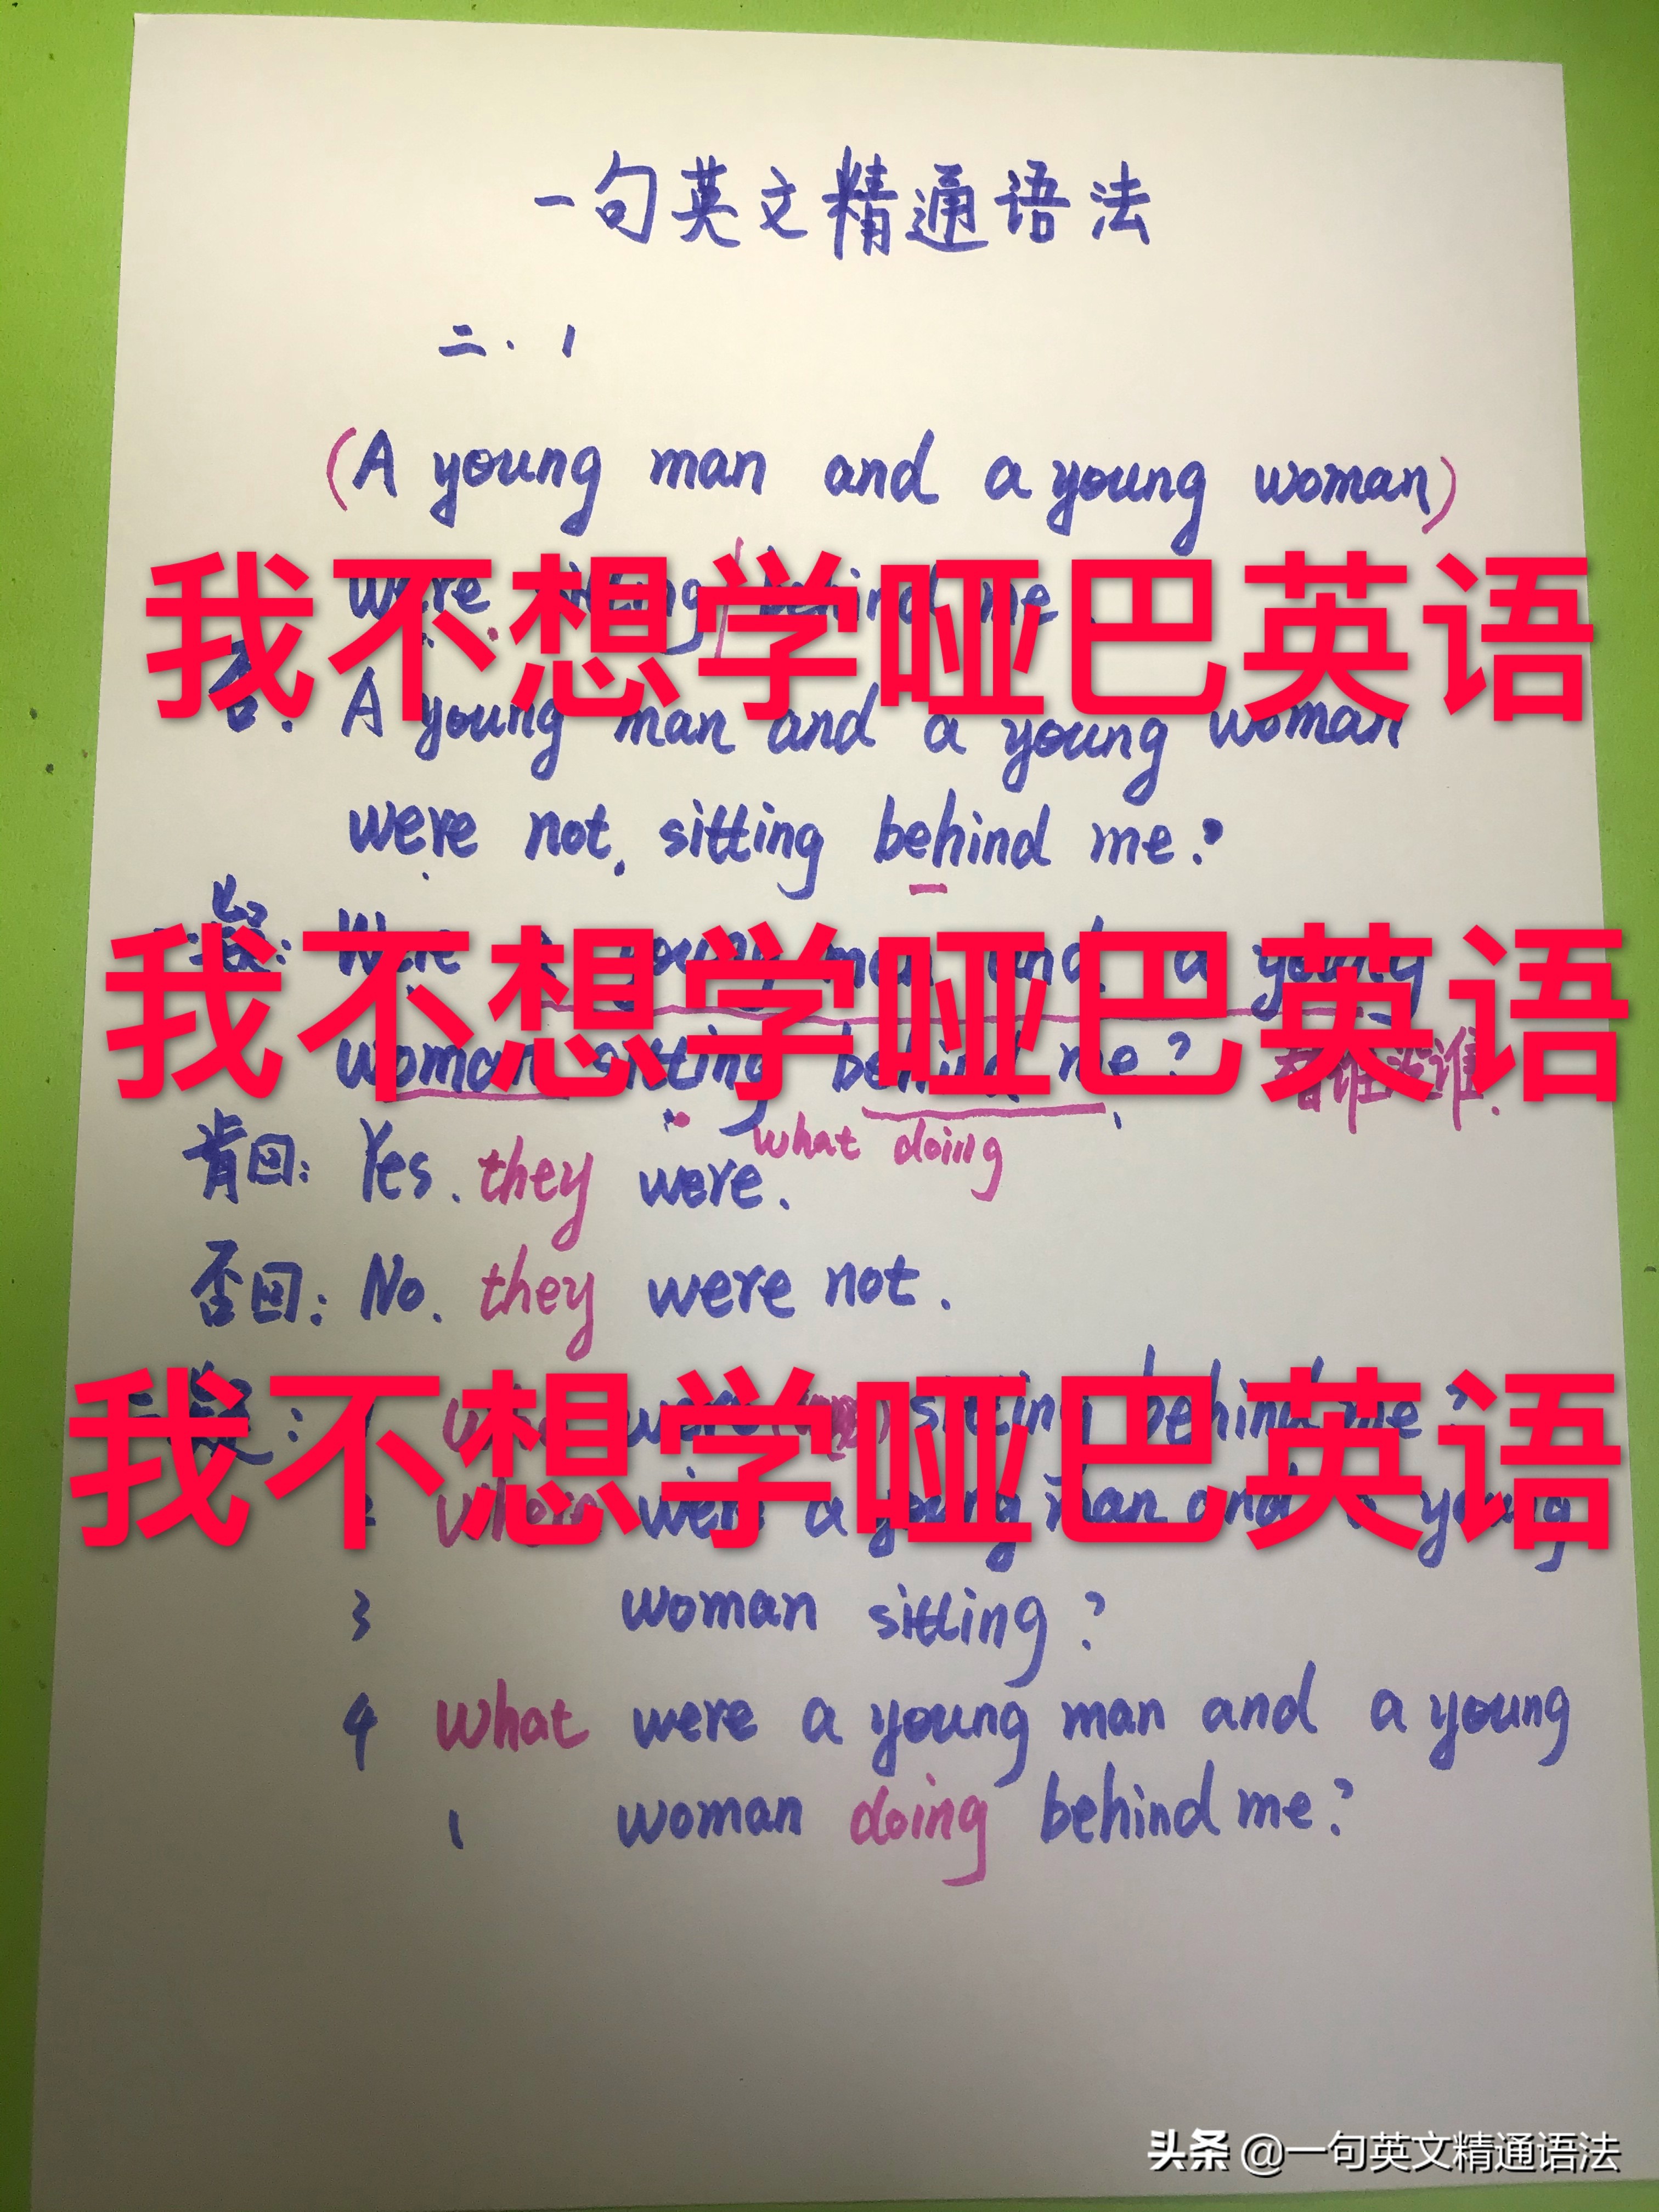 一句英文精通语法
二.1
(A young man and a young woman)
were sitting behind me.
我不想学哑巴英语
否: A young man and a young woman
were not. sitting behind me?
一疑: Were a young man and a young
我不想学哑巴英语
woman sitting behind me?
what doing
肯回: Yes. they were.
否回: No. they were not.
我不想学哑巴英语
were sitting behind me?
2 where were a young man and a young
3 woman sitting?
4 what were a young man and a young
1 woman doing behind me?
头条 @一句英文精通语法